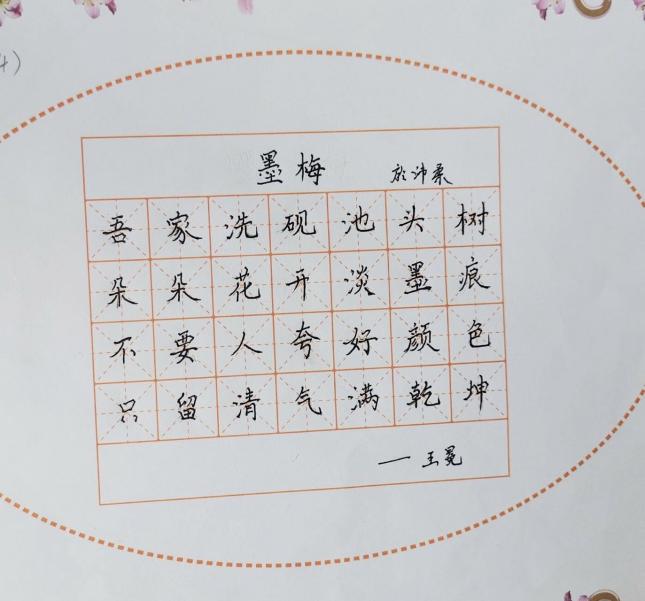 4)
墨梅 於沛柔
吾家洗砚池头树
朵朵花开淡墨痕
不要人夸好颜色
只留清气满乾坤
——王冕